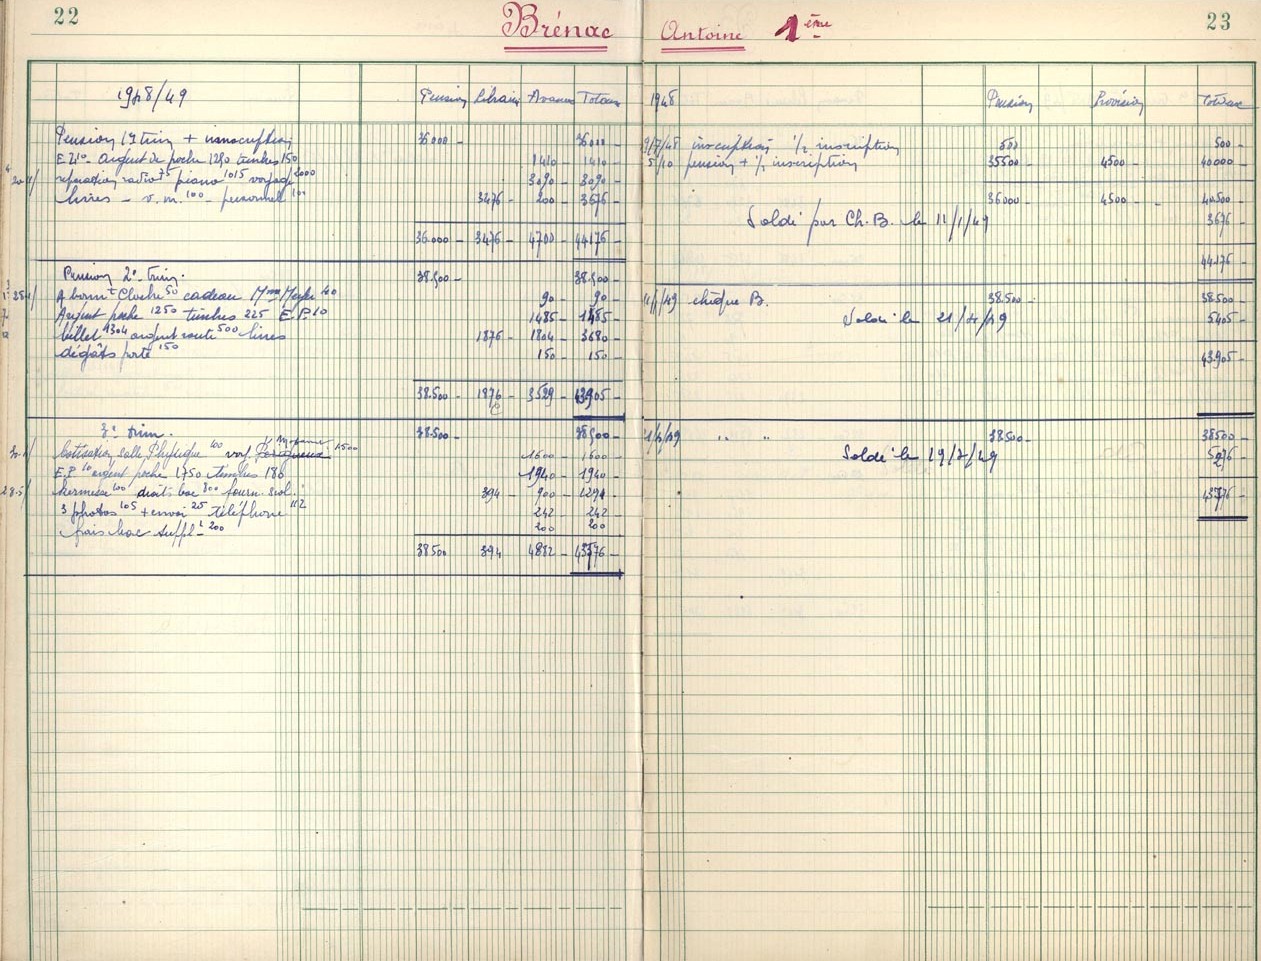 22
Brénac Antoine 1ème
23
1948/49 Pension Libraire Avances Totaux
Pension 1er trim + inscription 36000 36000
E.P. 10 argent de poche 1250 timbres 150 1410 - 1410 -
réparation radio 75 piano 1015 voyage 2000 3090 - 3090 -
livres - v.m. 100 - personnel 100 3476 200 - 3676 -
36.000 - 3476 - 4700 - 44176 -
Pension 2e trim. 38.500 - 38.500 -
Abonnt Cloche 50 cadeau Mme 40 90 - 90 -
Argent poche 1250 timbres 225 E.P. 10 1485 - 1485 -
billet 1304 argent route 500 livres 1876 - 1804 - 3680 -
dégâts porte 150 150 - 150 -
38.500 - 1876 - 3529 - 43905 -
3e trim. 38.500 - 38500 -
Cotisation salle Physique 100 voy. 1500 1600 - 1600 -
E.P. 10 argent poche 1750 timbres 180 1940 - 1940 -
kermesse 100 droits bac 800 fourn. scol. 394 - 900 - 1294 -
3 photos 105 + envoi 25 téléphone 112 242 - 242 -
frais bac suppl. 200 200 200 -
38500 394 - 4882 - 43776 -
1948 Pension Provision Totaux
9/7/48 inscription 1/2 inscription 500 500 -
5/10 pension + 1/2 inscription 35500 - 4500 - 40000 -
36000 - 4500 - 40.500 -
Soldé par Ch. B. le 11/1/49 3676 -
44.176 -
11/1/49 chèque B. 38.500 - 38.500 -
Soldé le 21/4/49 5405 -
43.905 -
21/4/49 " " 38500 - 38500 -
Soldé le 19/7/49 5276 -
43776 -